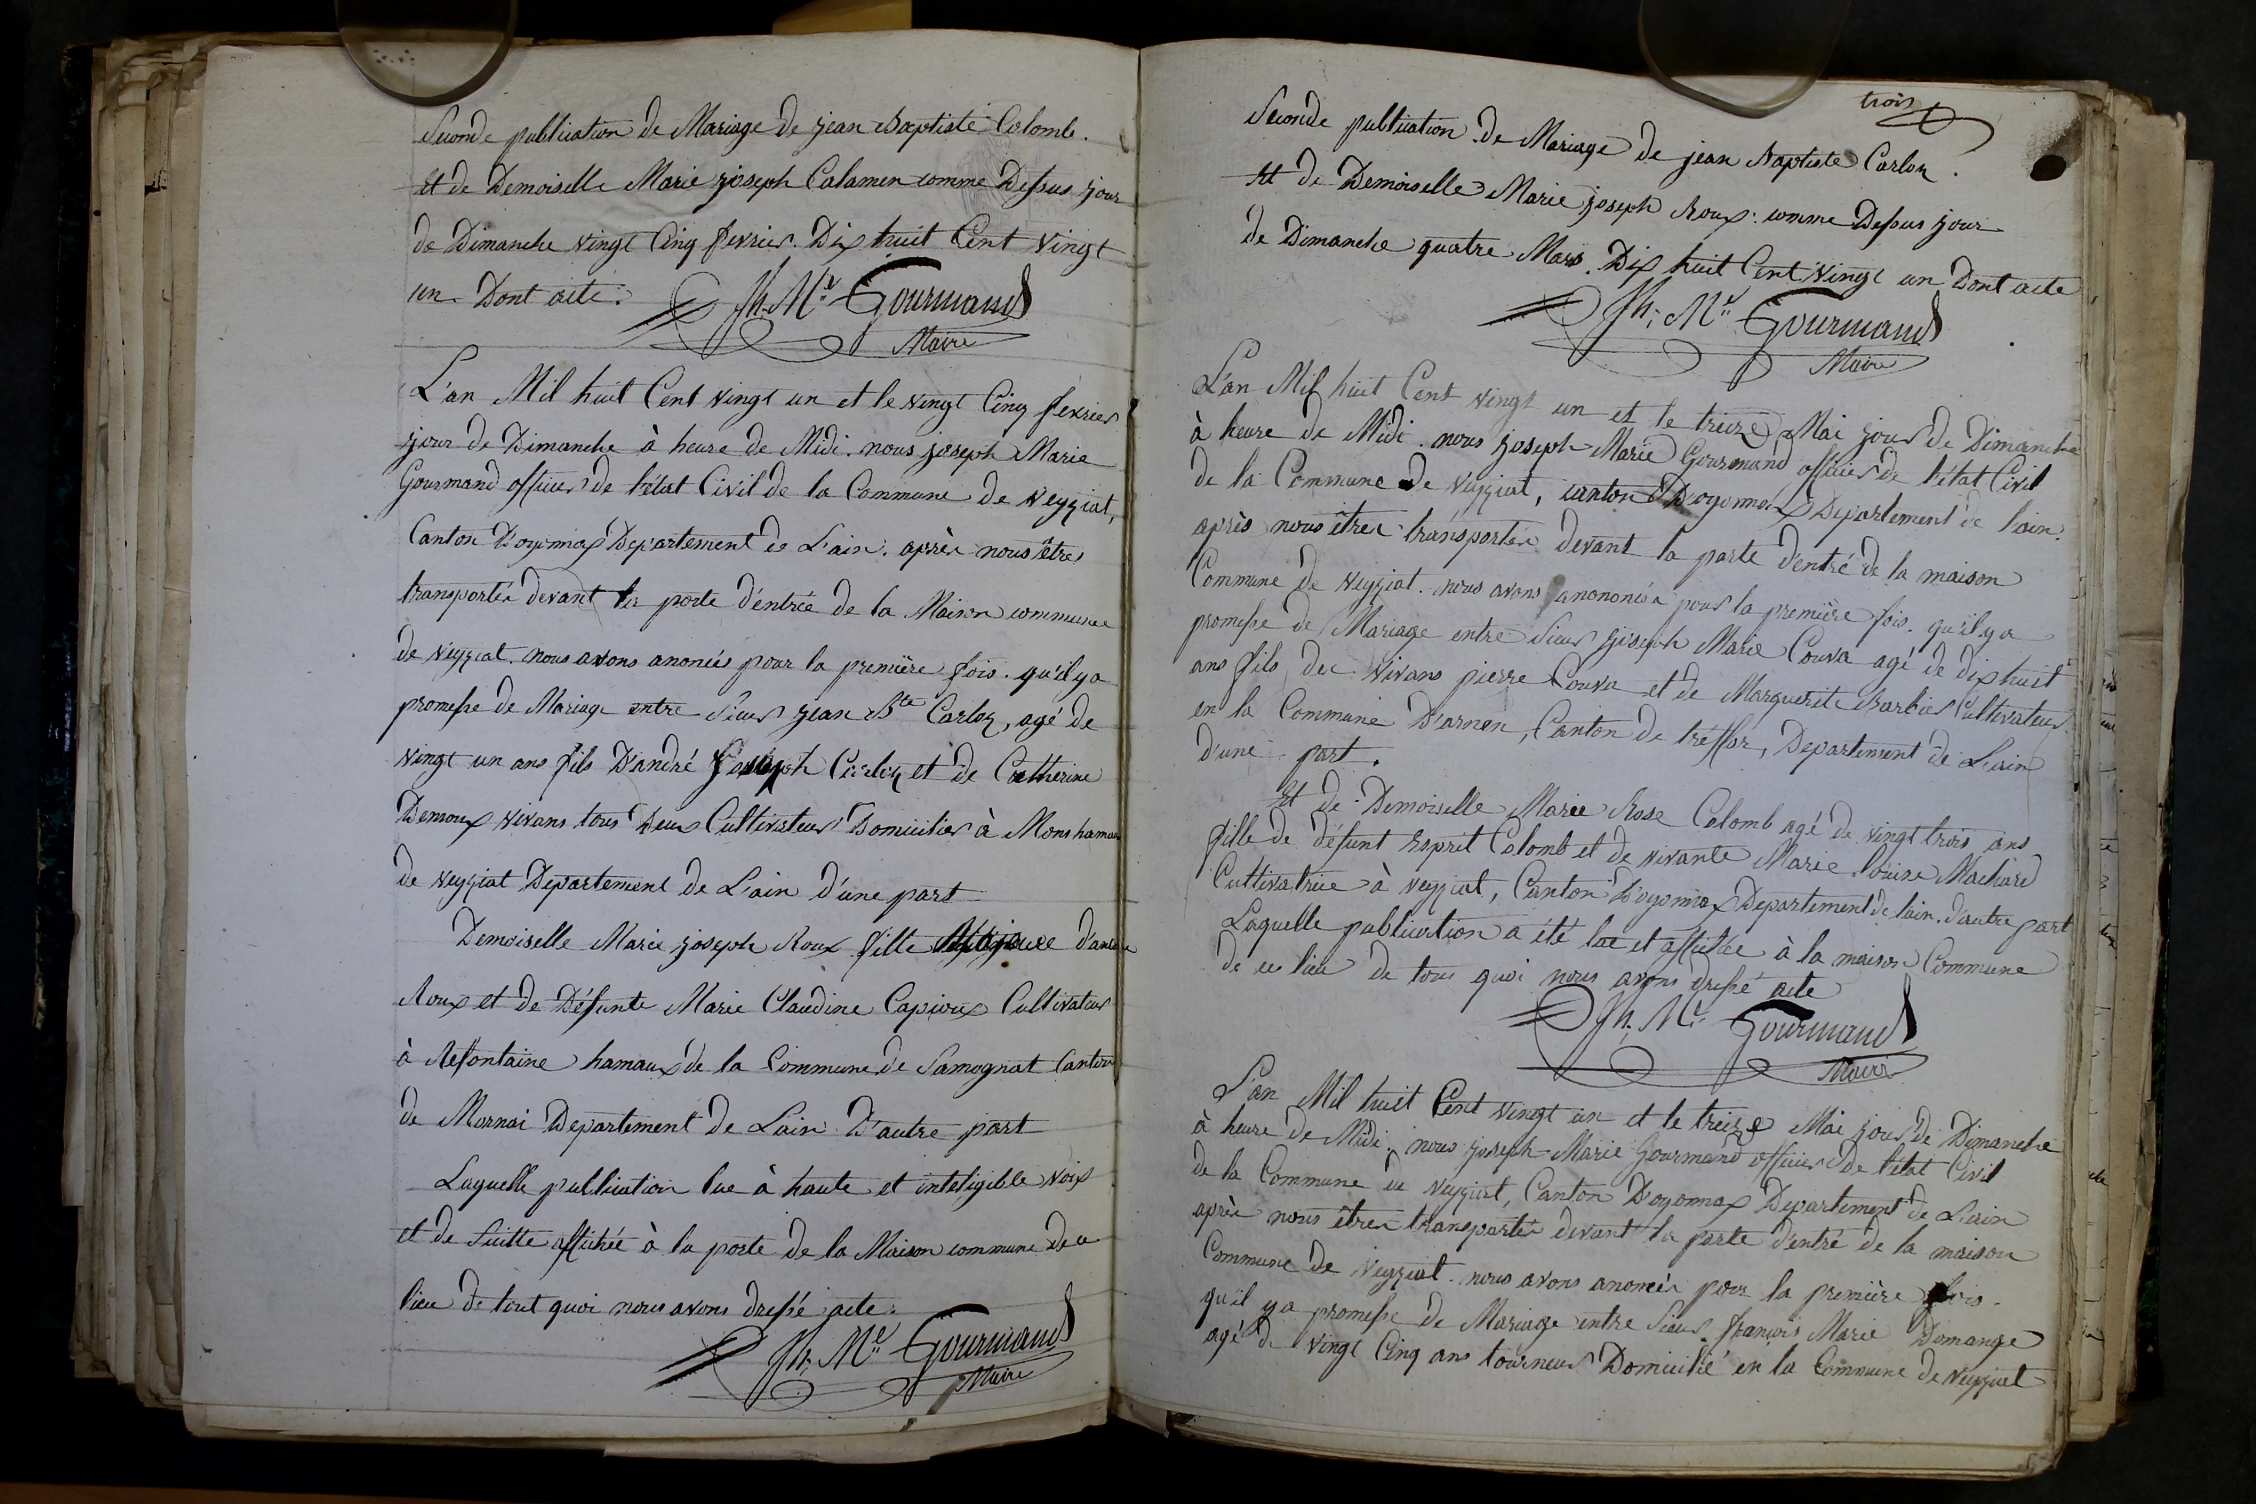 Seconde publication de Mariage de jean Baptiste Colomb.
Et de Demoiselle Marie joseph Calamen comme Dessus jour
de Dimanche vingt Cinq fevrier. Dix huit Cent vingt
un. Dont acte.
Jh. M.ie Gourmand
Maire
L'an Mil huit Cent vingt un et le vingt Cinq fevrier
jour de Dimanche à heure de Midi. nous joseph Marie
Gourmand officier de l'état Civil de la Commune de Veyziat,
Canton D'oyonnax Departement de L'ain. après nous êtres
transportés devant la porte d'entrée de la Maison commune
de veyziat. nous avons anoncés pour la première fois. qu'il y a
promesse de Mariage entre Sieur jean Bte Carloz, agé de
vingt un ans fils D'andré Joseph Carloz et de Catherine
Demoux vivans tous deux Cultivateur Domiciliés à Mons hamau
de veyziat Departement de L'ain d'une part
Demoiselle Marie joseph Roux fille Majeure
Roux et de Défunte Marie Claudine Capioux Cultivateur
à Refontaine hamaux de la Commune de Samognat Canton
de Mornai Departement de Lain D'autre part
Laquelle publication lue à haute et inteligible voix
et de Suitte affichée à la porte de la Maison commune de ce
lieu de tout quoi nous avons dressé acte.
Jh. M.ie Gourmand
Maire
trois
Seconde publication de Mariage de jean Baptiste Carloz.
Et de Demoiselle Marie joseph Roux. comme Dessus jour
de Dimanche quatre Mars. Dix huit Cent vingt un Dont acte
Jh. M.ie Gourmand
Maire
L'an Mil huit Cent vingt un et le treize Mai jour de Dimanche
à heure de Midi. nous joseph-Marie Gourmand officier de l'état Civil
de la Commune de Veyziat, canton D'oyonnax Departement de l'ain.
après nous êtres transportés devant la porte d'entré de la maison
Commune de veyziat. nous avons anononcés pour la première fois. qu'il y a
promesse de Mariage entre Sieur joseph Marie Couva agé de dix huit
ans fils des vivans pierre Couva et de Marguerite Barbier Cultivateur
en la Commune D'arnan, Canton de tréffor, Departement de L'ain
d'une part.
Et de Demoiselle Marie Rose Colomb agé de vingt trois ans
fille de défunt Esprit Colomb et de vivante Marie Louise Machard
Cultivatrice à veyziat, Canton D'oyonnax Departement de lain. d'autre part
Laquelle publication a été lue et affichée à la maison Commune
de ce lieu de tous quoi nous avons dressé acte
Jh. M.ie Gourmand
Maire
L'an Mil huit Cent vingt un et le treize Mai jour de Dimanche
à heure de Midi. nous joseph-Marie Gourmand officier de l'état Civil
de la Commune de veyziat, Canton D'oyonnax Departement de L'ain
après nous êtres transportés devant la porte d'entré de la maison
Commune de veyziat. nous avons anoncés pour la première fois.
qu'il y a promesse de Mariage entre Sieur françois Marie Domange
agé de vingt Cinq ans tourneur Domicilié en la Commune de veyziat